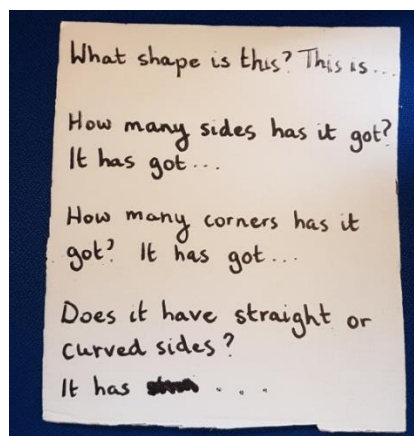 What shape is this? This is...
How many sides has it got?
It has got...
How many corners has it
got? It has got...
Does it have straight or
curved sides?
It has ...